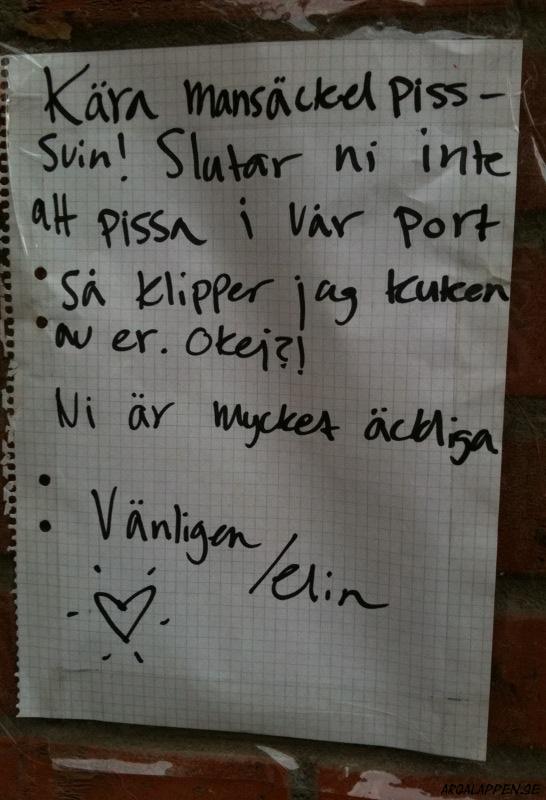 Kära mansäckel piss-
svin! Slutar ni inte
att pissa i vår port
Så klipper jag kuken
av er. Okej?!
Ni är mycket äckliga
Vänligen
/Elin
ARGALAPPEN.SE